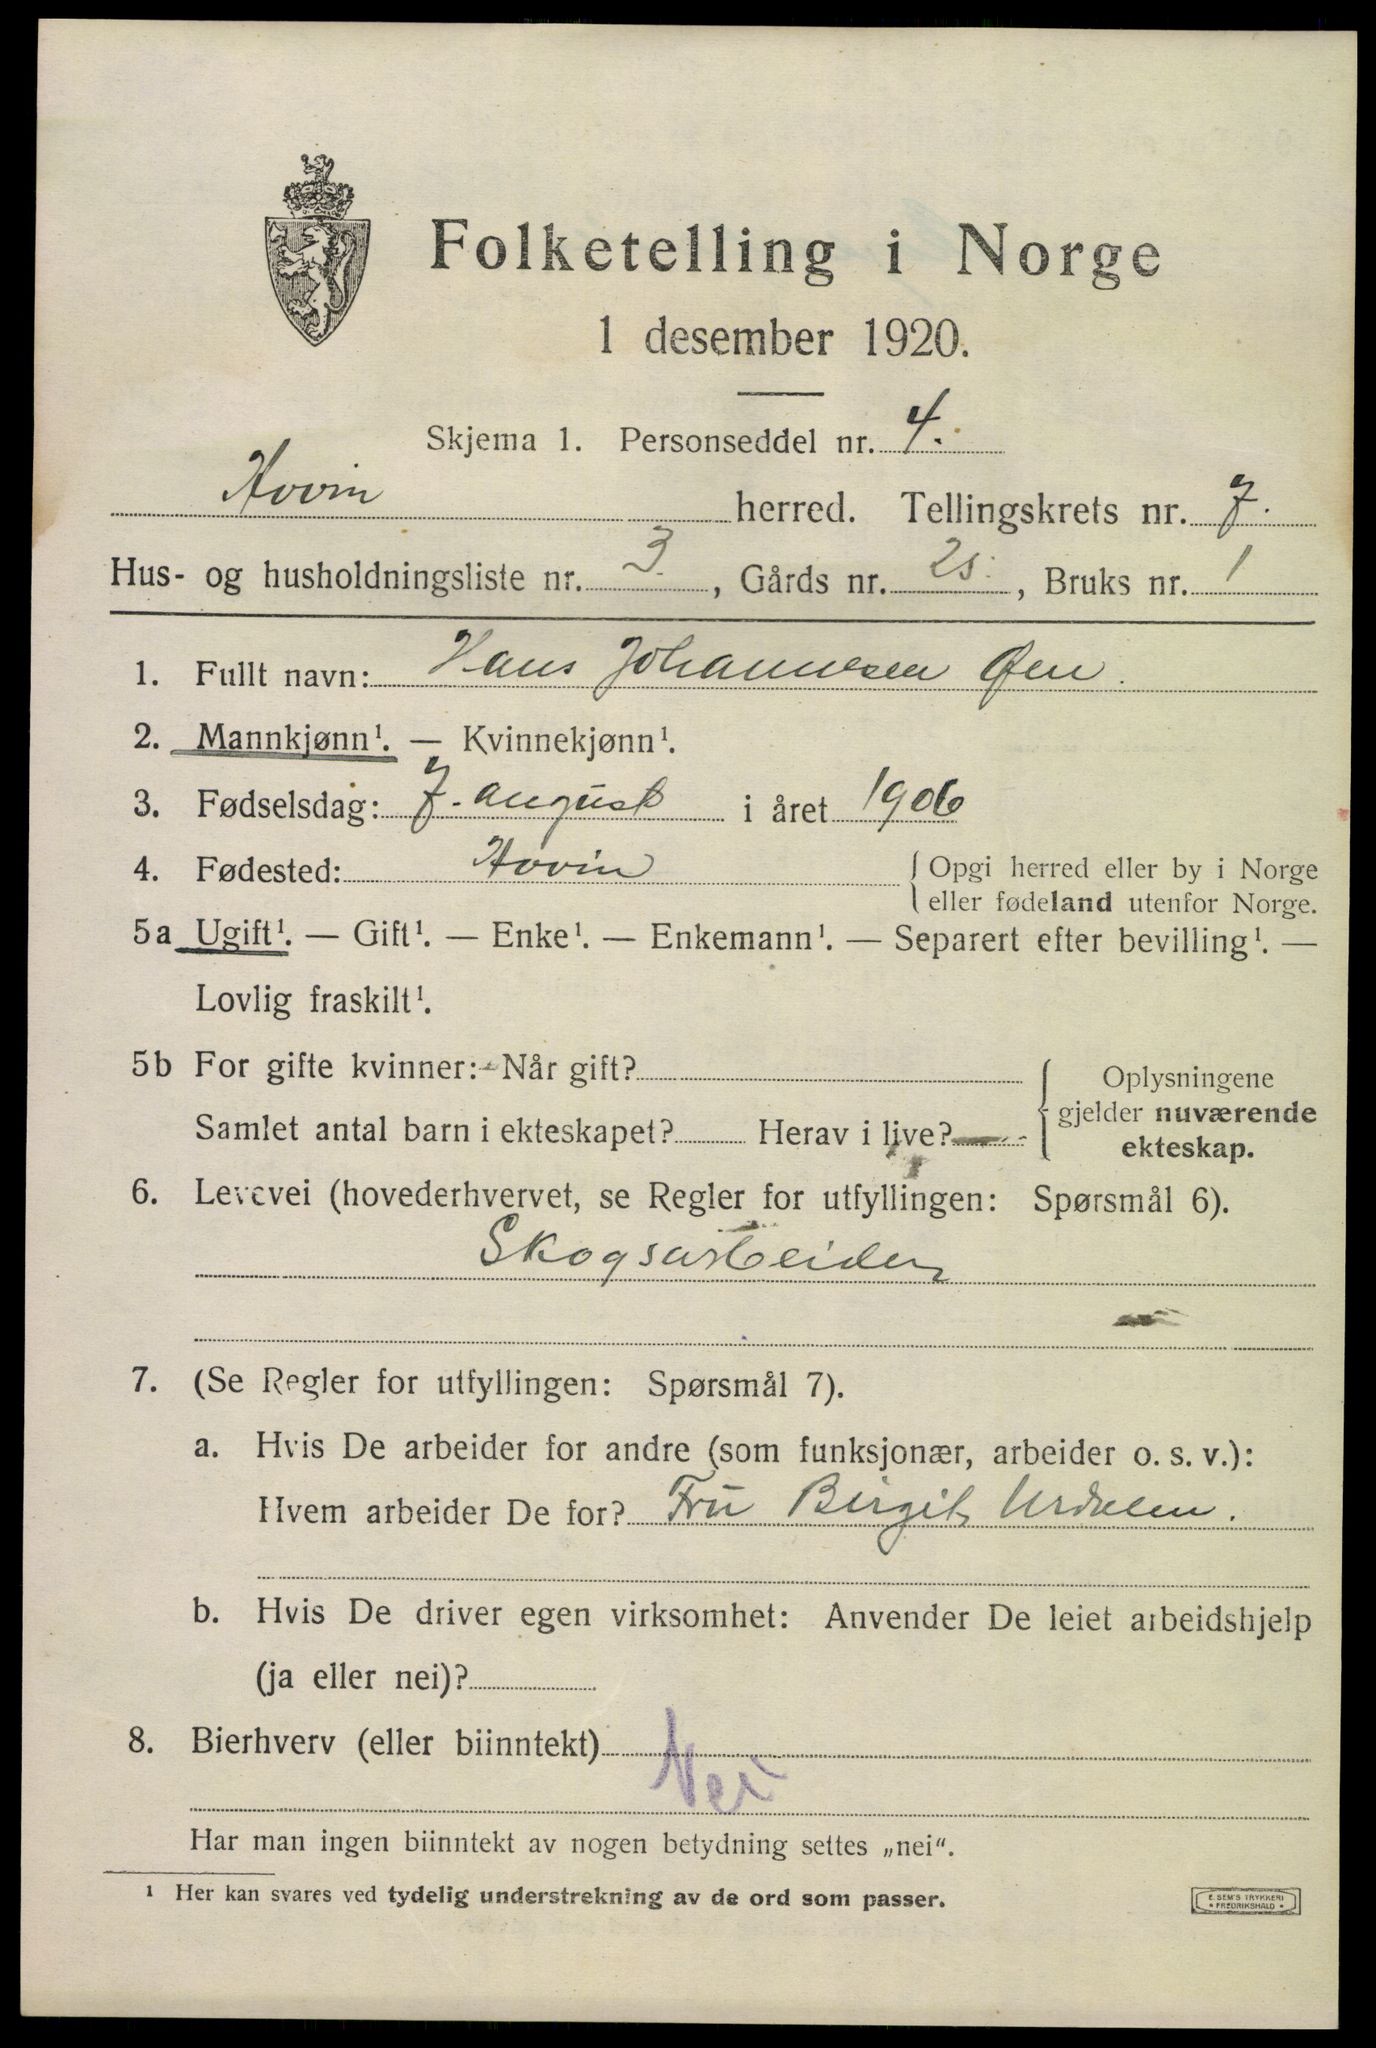 Folketelling i Norge
1 desember 1920.
Skjema 1. Personseddel nr. 4.
Hovin herred. Tellingskrets nr. 7.
Hus- og husholdningsliste nr. 3., Gårds nr. 25., Bruks nr. 1
1. Fullt navn: Hans Johannesen Øen.
2. Mannkjønn¹. — Kvinnekjønn¹.
3. Fødselsdag: 7. august i året 1906
4. Fødested: Hovin { Opgi herred eller by i Norge
eller fødeland utenfor Norge.
5a Ugift¹. — Gift¹. — Enke¹. — Enkemann¹. — Separert efter bevilling¹. —
Lovlig fraskilt¹.
5b For gifte kvinner: Når gift?
Samlet antal barn i ekteskapet? Herav i live?
{ Oplysningene
gjelder nuværende
ekteskap.
6. Levevei (hovederhvervet, se Regler for utfyllingen: Spørsmål 6).
Skogsarbeider
7. (Se Regler for utfyllingen: Spørsmål 7).
a. Hvis De arbeider for andre (som funksjonær, arbeider o. s. v.):
Hvem arbeider De for? Fru Birgit Urdalen.
b. Hvis De driver egen virksomhet: Anvender De leiet arbeidshjelp
(ja eller nei)?
8. Bierhverv (eller biinntekt)
Nei
Har man ingen biinntekt av nogen betydning settes „nei“.
¹ Her kan svares ved tydelig understrekning av de ord som passer.
E. SEM'S TRYKKERI
* FREDRIKSHALD *